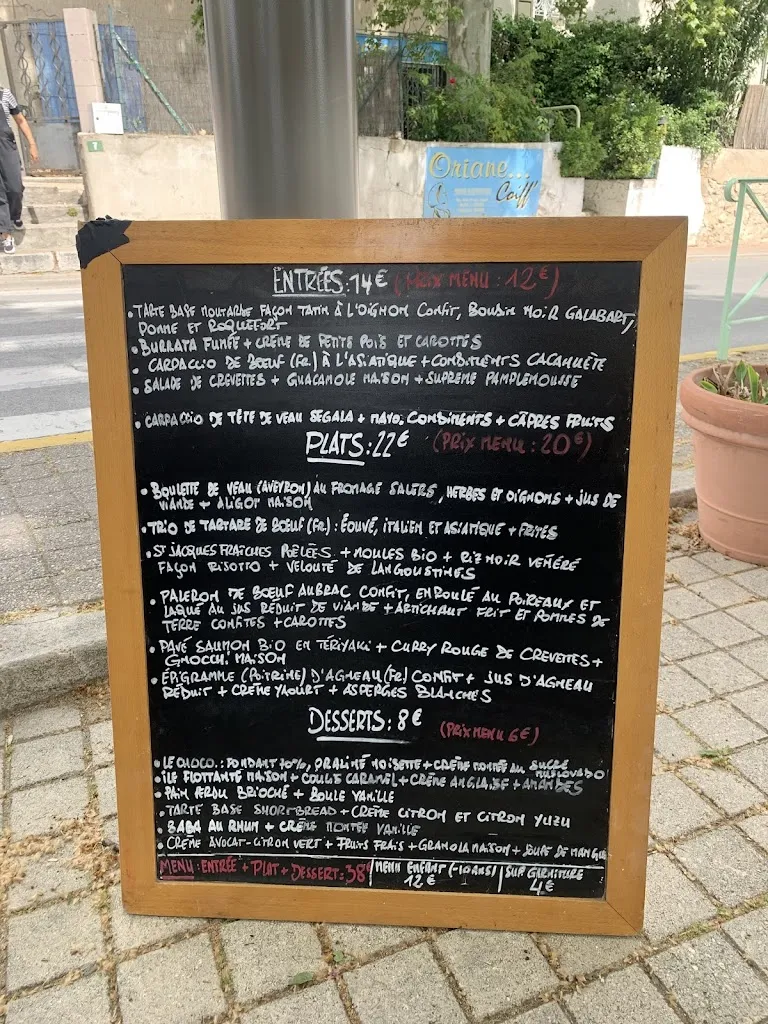 7
Oriane...
Coiff'
ENTRÉES : 14€ (PRIX MENU : 12€)
• TARTE BASE MOUTARDE FAÇON TATIN À L'OIGNON CONFIT, BOUDIN NOIR GALABART,
POMME ET ROQUEFORT
• BURRATA FUMÉE + CRÈME DE PETITS POIS ET CAROTTES
• CARPACCIO DE BŒUF (Fr.) À L'ASIATIQUE + CONDIMENTS CACAHUÈTE
• SALADE DE CREVETTES + GUACAMOLE MAISON + SUPRÊME PAMPLEMOUSSE
• CARPACCIO DE TÊTE DE VEAU SEGALA + MAYO. CONDIMENTS + CÂPRES FRUITS
PLATS : 22€ (PRIX MENU : 20€)
• BOULETTE DE VEAU (AVEYRON) AU FROMAGE SALERS, HERBES ET OIGNONS + JUS DE
VIANDE + ALIGOT MAISON
• TRIO DE TARTARE DE BŒUF (Fr.) : ÉOUVÉ, ITALIEN ET ASIATIQUE + FRITES
• ST JACQUES FRAÎCHES POÊLÉES + MOULES BIO + RIZ NOIR VÉNÉRÉ
FAÇON RISOTTO + VELOUTÉ DE LANGOUSTINES
• PALERON DE BŒUF AUBRAC CONFIT, ENROULÉ AU POIREAUX ET
LAQUÉ AU JUS RÉDUIT DE VIANDE + ARTICHAUT FRIT ET POMMES DE
TERRE CONFITES + CAROTTES
• PAVÉ SAUMON BIO EN TERIYAKI + CURRY ROUGE DE CREVETTES +
GNOCCHI MAISON
• ÉPIGRAMME (POITRINE) D'AGNEAU (Fr.) CONFIT + JUS D'AGNEAU
RÉDUIT + CRÈME YAOURT + ASPERGES BLANCHES
DESSERTS : 8€ (PRIX MENU 6€)
• LE CHOCO. : FONDANT 70%, PRALINÉ NOISETTE + CRÈME MONTÉE AU SUCRE
MUSCOVADO
• ÎLE FLOTTANTE MAISON + COULIS CARAMEL + CRÈME ANGLAISE + AMANDES
• PAIN PERDU BRIOCHÉ + BOULE VANILLE
• TARTE BASE SHORTBREAD + CRÈME CITRON ET CITRON YUZU
• BABA AU RHUM + CRÈME MONTÉE VANILLE
• CRÈME AVOCAT-CITRON VERT + FRUITS FRAIS + GRANOLA MAISON + SOUPE DE MANGUE
MENU : ENTRÉE + PLAT + DESSERT = 38€ | MENU ENFANT (-10 ANS) 12€ | SUP GARNITURE 4€